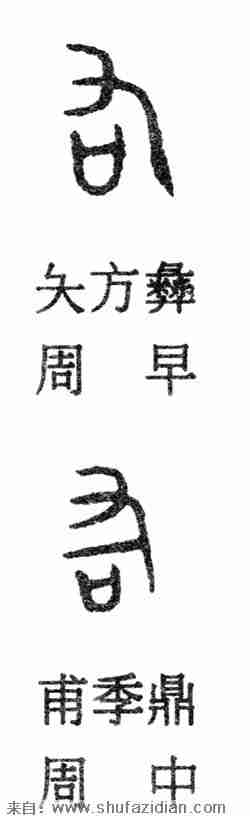 右
夨方彝
周 早
右
甫季鼎
周 中
来自:www.shufazidian.com